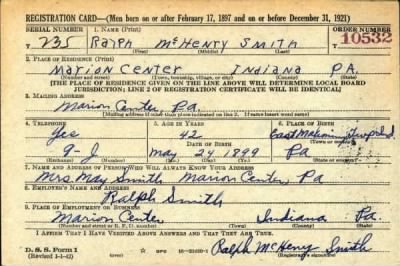 REGISTRATION CARD—(Men born on or after February 17, 1897 and on or before December 31, 1921)
SERIAL NUMBER 1. NAME (Print) ORDER NUMBER
735 Ralph McHenry Smith 10532
(First) (Middle) (Last)
2. PLACE OF RESIDENCE (Print)
Marion Center Indiana PA.
(Number and street) (Town, township, village, or city) (County) (State)
[THE PLACE OF RESIDENCE GIVEN ON THE LINE ABOVE WILL DETERMINE LOCAL BOARD
JURISDICTION; LINE 2 OF REGISTRATION CERTIFICATE WILL BE IDENTICAL]
3. MAILING ADDRESS
Marion Center, Pa.
[Mailing address if other than place indicated on line 2. If same insert word same]
4. TELEPHONE 5. AGE IN YEARS 6. PLACE OF BIRTH
Yes 42 East
DATE OF BIRTH (Town or county)
9-J May 24 1899 Pa
(Mo.) (Day) (Yr.) (State or country)
7. NAME AND ADDRESS OF PERSON WHO WILL ALWAYS KNOW YOUR ADDRESS
Mrs May Smith Marion Center, Pa
8. EMPLOYER'S NAME AND ADDRESS
Ralph Smith
9. PLACE OF EMPLOYMENT OR BUSINESS
Marion Center Indiana Pa.
(Number and street or R. F. D. number) (Town) (County) (State)
I AFFIRM THAT I HAVE VERIFIED ABOVE ANSWERS AND THAT THEY ARE TRUE.
D. S. S. Form 1
(Revised 1-1-42) GPO Ralph McHenry Smith
(Registrant's signature)